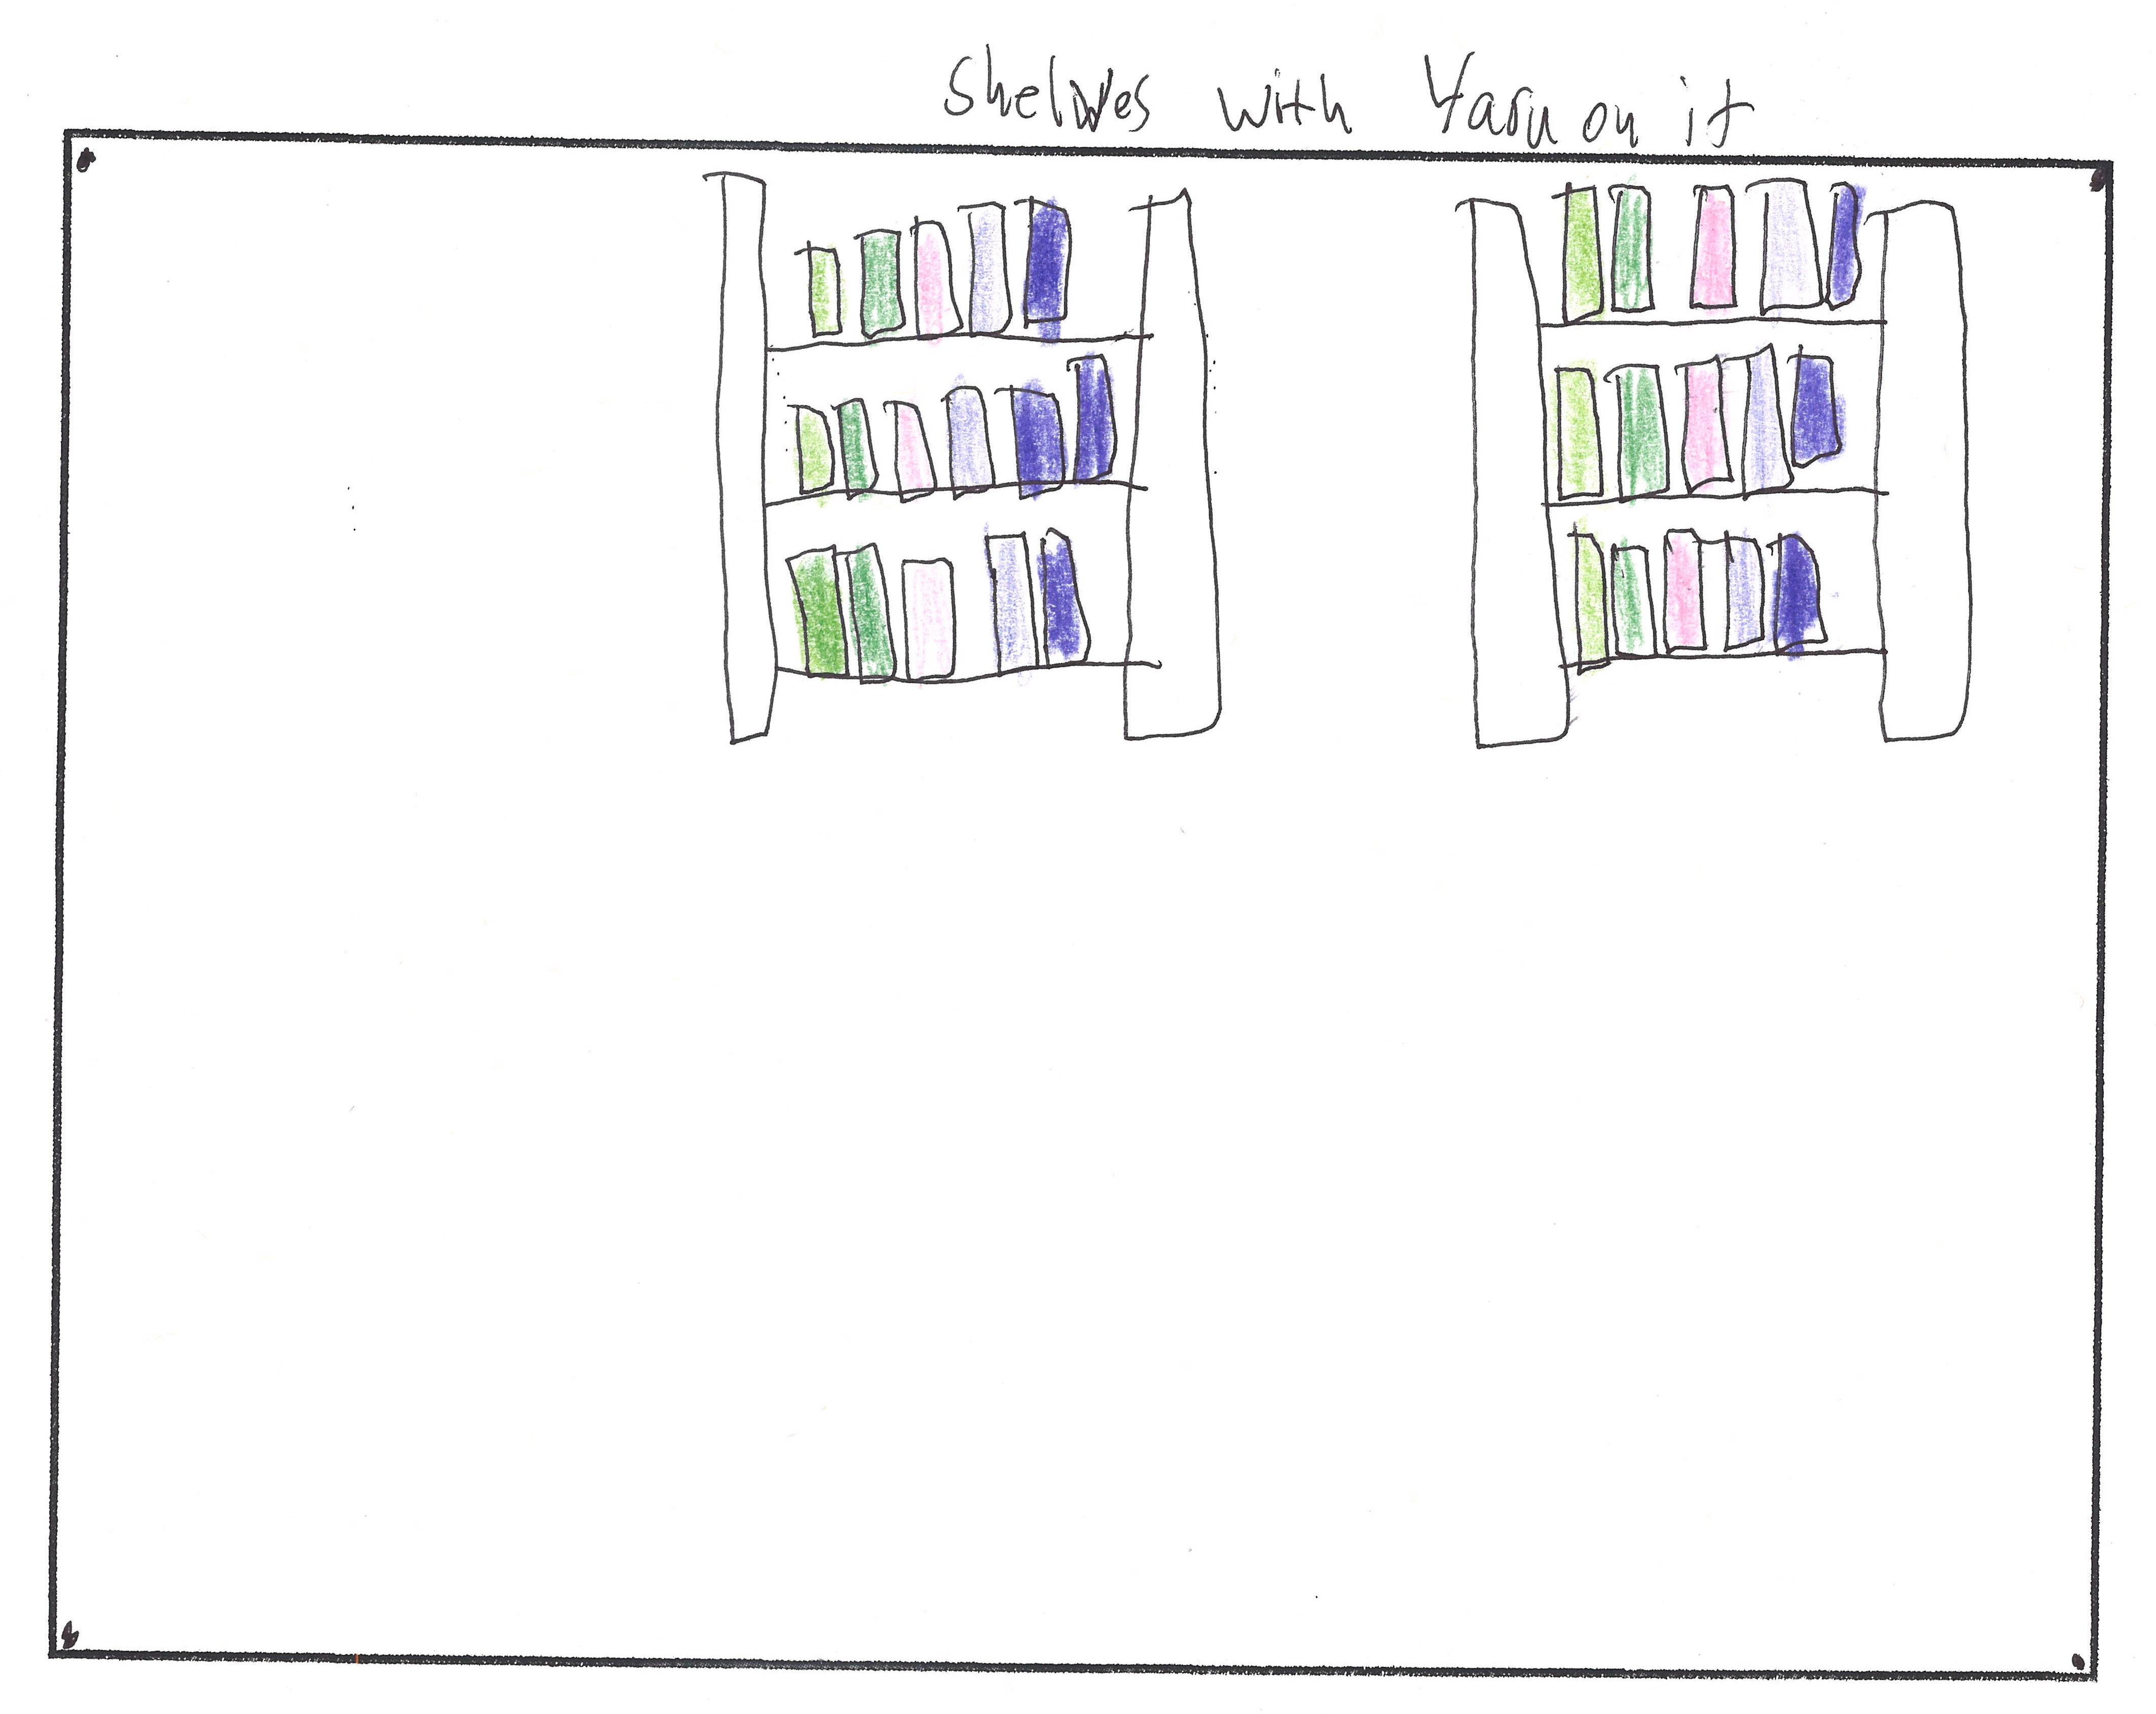 Shelves with Yarn on it